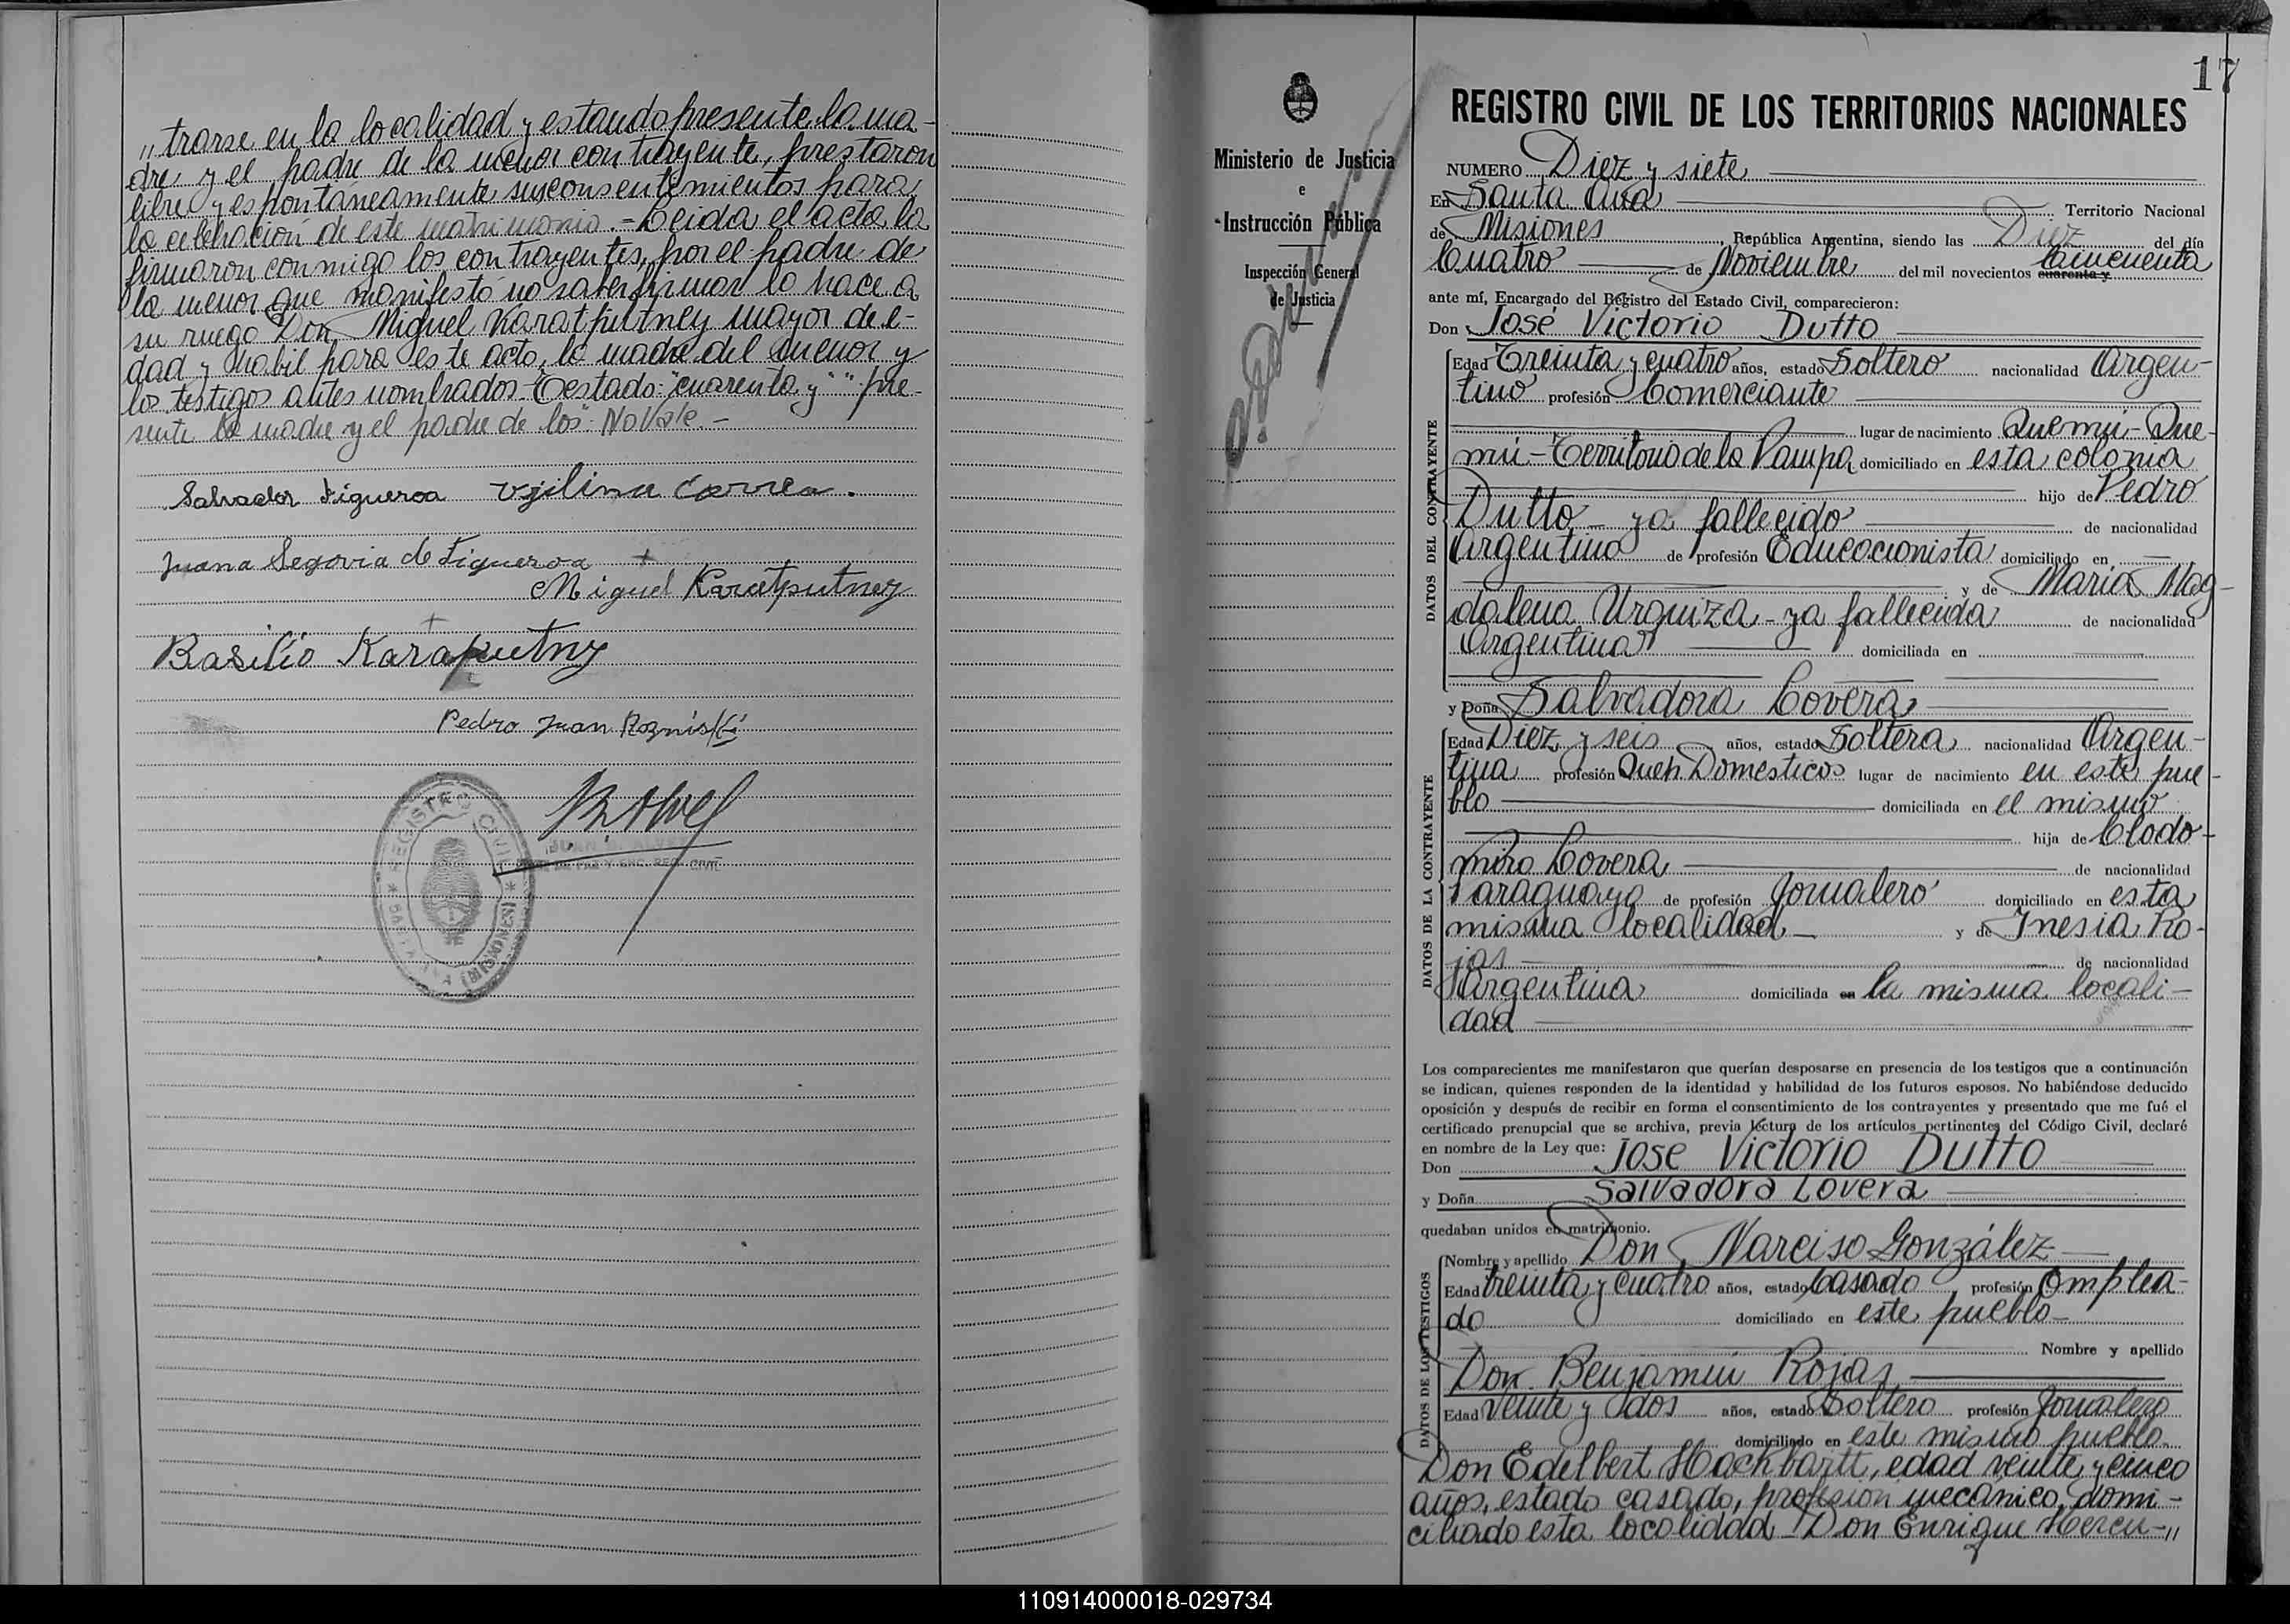 „trarse en la localidad y estando presente la ma-
dre y el padre de la menor contrayente, prestaron
libre y espontáneamente sus consentimientos para
la celebración de este matrimonio.- Leida el acta la
firmaron conmigo los contrayentes, por el padre de
la menor que manifestó no saber firmar lo hace a
su ruego Don Miguel Karatputney mayor de e-
dad y habil para este acto, la madre del menor y
los testigos antes nombrados.- Testado: "cuarenta y" " pre-
sente la madre y el padre de los": No Vale.-
Salvador Figueroa
Correa.
Juana Segovia de Figueroa +
Miguel Karatputney
+
Basilio Karaputny
Pedro Juan
REGISTRO CIVIL
(MISIONES)
JUAN
DE PAZ Y ENC. REG. CIVIL
Ministerio de Justicia
e
Instrucción Pública
Inspección General
de Justicia
17
REGISTRO CIVIL DE LOS TERRITORIOS NACIONALES
NUMERO Diez y siete
En Santa Ana Territorio Nacional
de Misiones, República Argentina, siendo las Diez del día
Cuatro de Noviembre del mil novecientos cuarenta y Cincuenta
ante mí, Encargado del Registro del Estado Civil, comparecieron:
Don José Victorio Dutto
DATOS DEL CONTRAYENTE
Edad Treinta y cuatro años, estado Soltero nacionalidad Argen-
tino profesión Comerciante
lugar de nacimiento Quemú-Que-
mú-Territorio de la Pampa domiciliado en esta colonia
hijo de Pedro
Dutto - ya fallecido de nacionalidad
Argentino de profesión Educacionista domiciliado en
y de María Mag-
dalena Urquiza - ya fallecida de nacionalidad
Argentina domiciliada en
y Doña Salvadora Lovera
DATOS DE LA CONTRAYENTE
Edad Diez y seis años, estado Soltera nacionalidad Argen-
tina profesión Queh. Domesticos lugar de nacimiento en este pue-
blo domiciliada en el mismo
hija de Clodo-
miro Lovera de nacionalidad
Paraguayo de profesión Jornalero domiciliado en esta
misma localidad y de Inesia Ro-
jas de nacionalidad
Argentina domiciliada en la misma locali-
dad
Los comparecientes me manifestaron que querían desposarse en presencia de los testigos que a continuación
se indican, quienes responden de la identidad y habilidad de los futuros esposos. No habiéndose deducido
oposición y después de recibir en forma el consentimiento de los contrayentes y presentado que me fué el
certificado prenupcial que se archiva, previa lectura de los artículos pertinentes del Código Civil, declaré
en nombre de la Ley que:
Don José Victorio Dutto
y Doña Salvadora Lovera
quedaban unidos en matrimonio.
DATOS DE LOS TESTIGOS
Nombre y apellido Don Narciso González
Edad treinta y cuatro años, estado casado profesión Emplea-
do domiciliado en este pueblo
Nombre y apellido
Don Benjamin Rojas
Edad veinte y dos años, estado Soltero profesión Jornalero
domiciliado en este mismo pueblo.
Don Edelbert Hachbartt, edad veinte y cinco
años, estado casado, profesión mecánico, domi-
ciliado esta localidad - Don Enrique Hereu-„
110914000018-029734